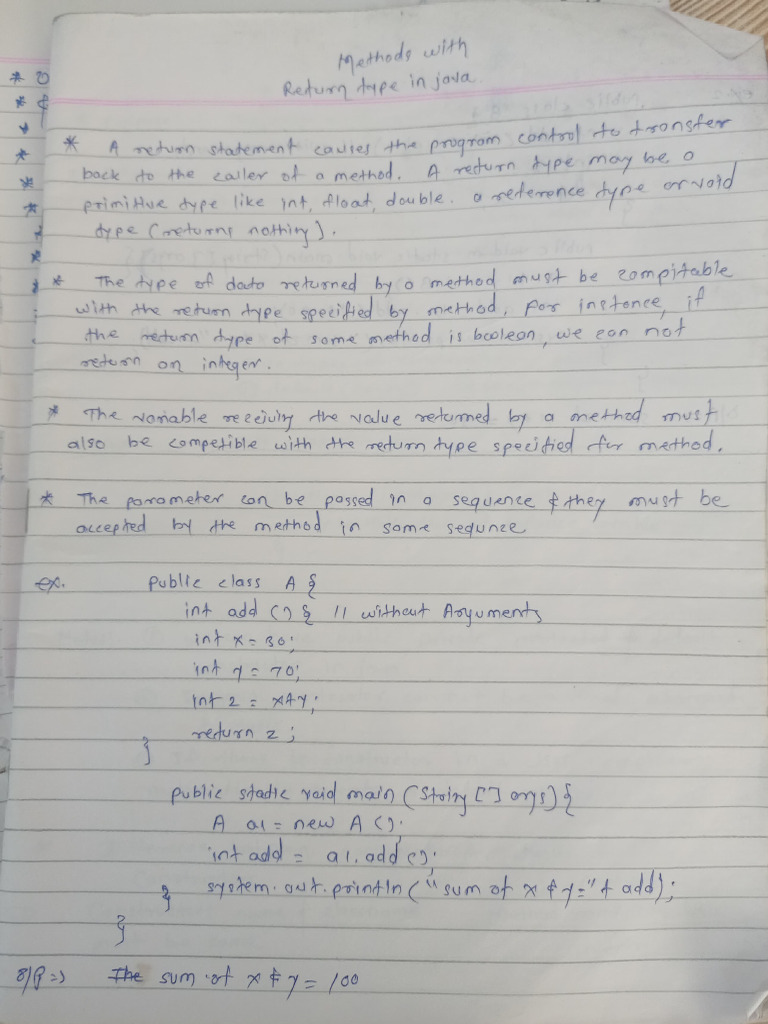 Methods with
Return type in java
* A return statement causes the program control to transfer
back to the caller of a method. A return type may be a
primitive type like int, float, double. a reference type or void
type (returns nothing).
* The type of data returned by a method must be compitable
with the return type specified by method, For instance, if
the return type of some method is boolean, we can not
return an integer.
* The variable receiving the value returned by a method must
also be competible with the return type specified for method.
* The parameter can be passed in a sequence & they must be
accepted by the method in same sequnce
ex. public class A {
int add () { // without Arguments
int x = 30;
int y = 70;
int z = x+y;
return z;
}
public static void main (String [] args) {
A a1 = new A ();
int add = a1.add();
system.out.println ("sum of x & y=" + add);
}
}
O/P => The sum of x & y = 100